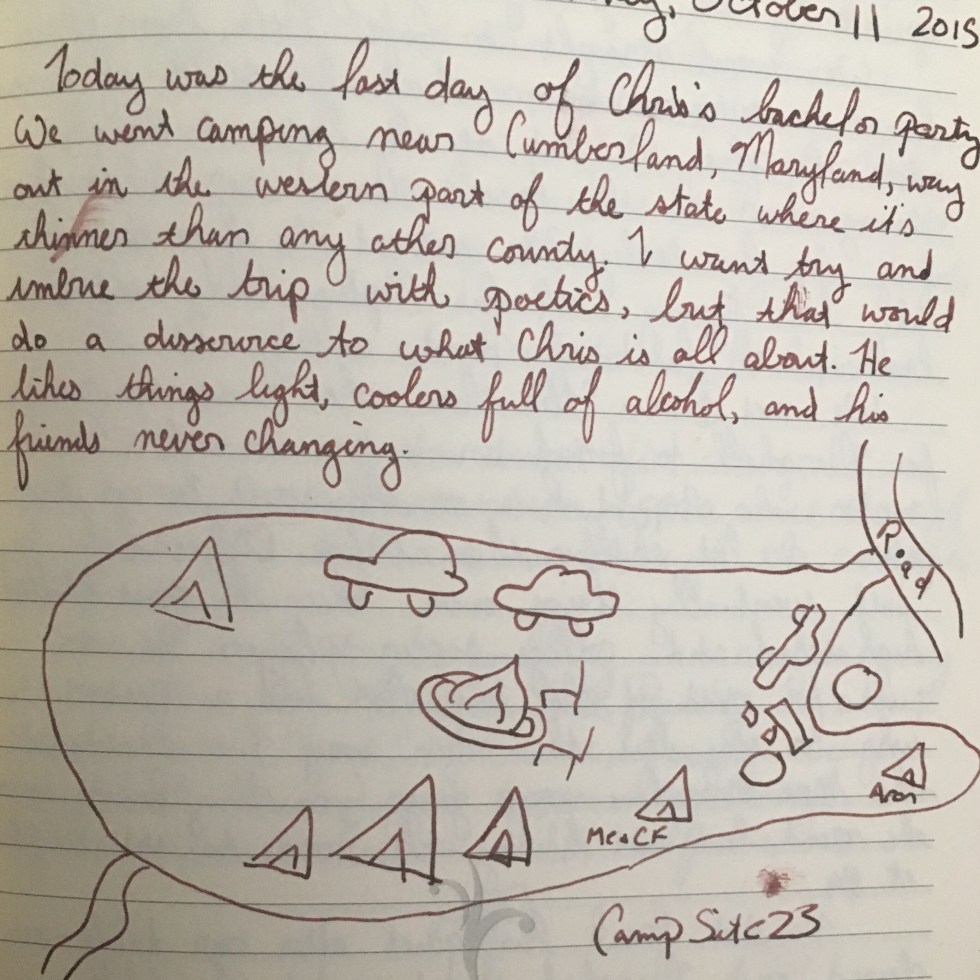 October 11 2015
Today was the last day of Chris's bachelor party
We went camping near Cumberland, Maryland, way
out in the western part of the state where it's
thinner than any other county. I want try and
imbue the trip with poetics, but that would
do a disservice to what Chris is all about. He
likes things light, coolers full of alcohol, and his
friends never changing.
Road
Aron
Me & CF
Camp Site 23